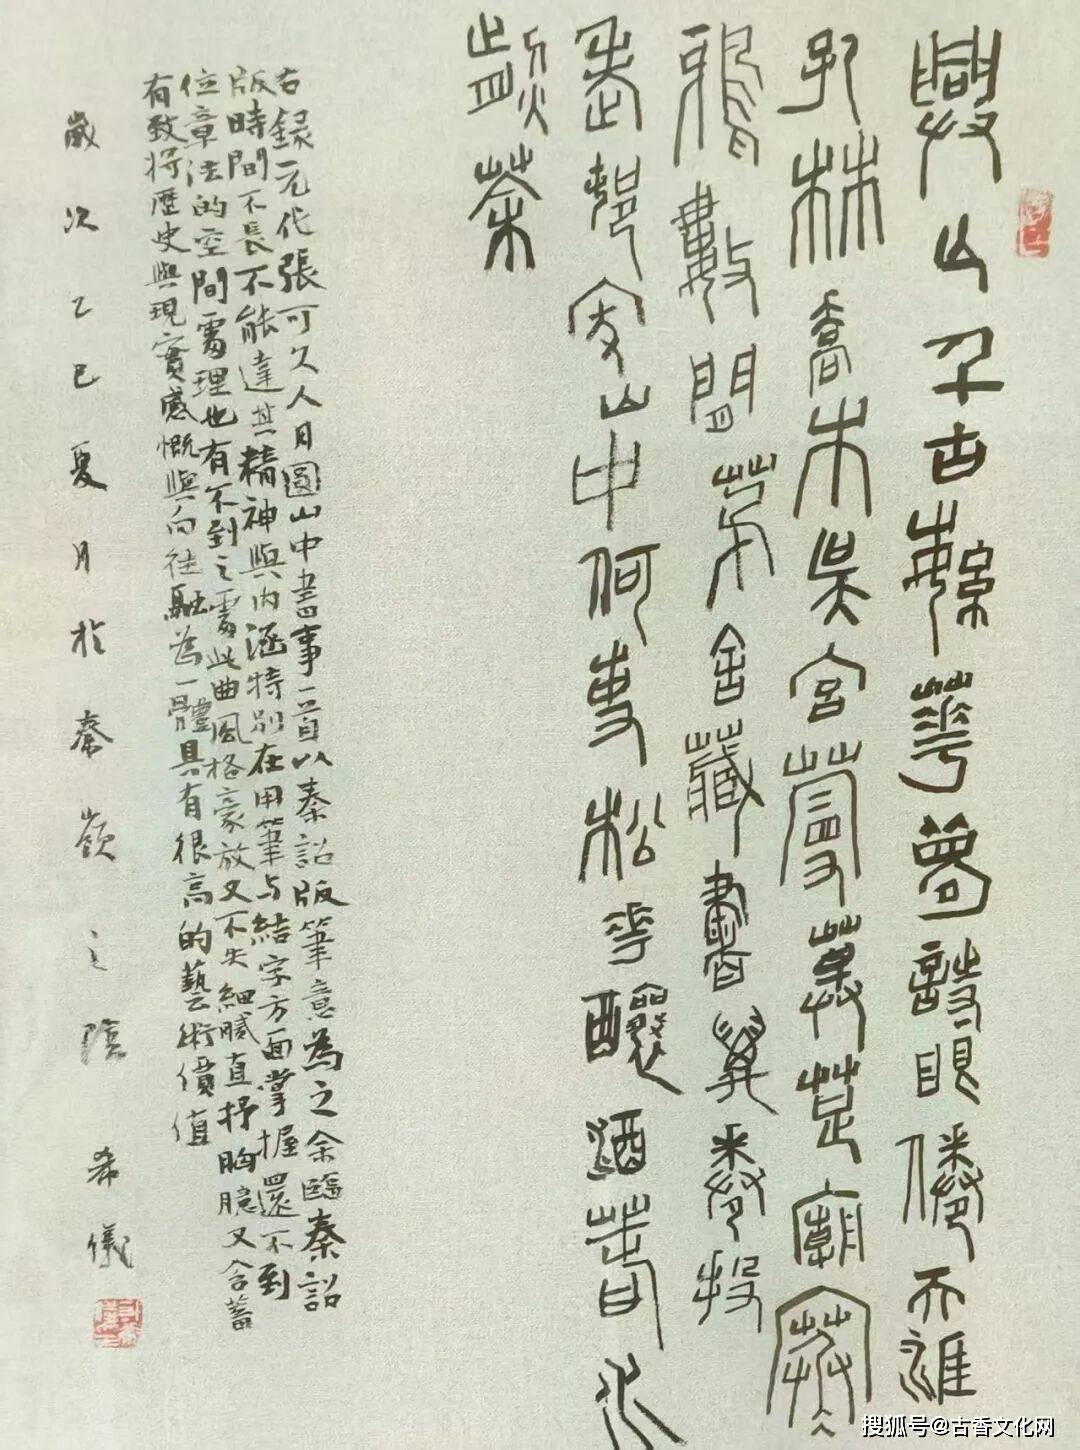 興亡千古繁華夢詩眼倦天涯
孔林喬木吳宮蔓草楚廟寒
鴉數間茅舍藏書萬卷投
老村家山中何事松花釀酒春水
煎茶
右錄元代張可久人月圓山中書事一首以秦詔版筆意為之余臨秦詔
版時間不長不能達其精神與內涵特別在用筆与結字方面掌握還不到
位章法的空間處理也有不到之處此曲風格豪放又不失細膩直抒胸臆又含蓄
有致將歷史與現實感慨與向往融為一體具有很高的藝術價值
歲次乙巳夏月於秦嶺之陰 希儀
搜狐号@古香文化网